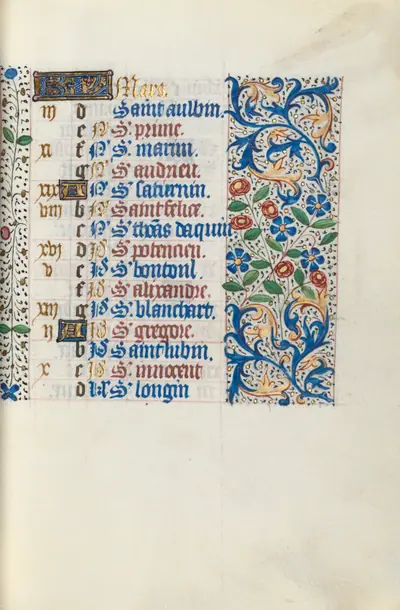 KL Mars.
iij d Saint aulbin.
e N S. prime.
xi f N S. marin.
g N S. audrieu.
xix A N S. saturnin.
viij b N Saint felice.
c N S. thõas daquin
xvj d S. potencien.
v e S. bontoul.
f S. alixandre.
xiij g S. blanchart.
ij A S. gregore.
b Saint lubin.
x c S. innocent
d S. longin